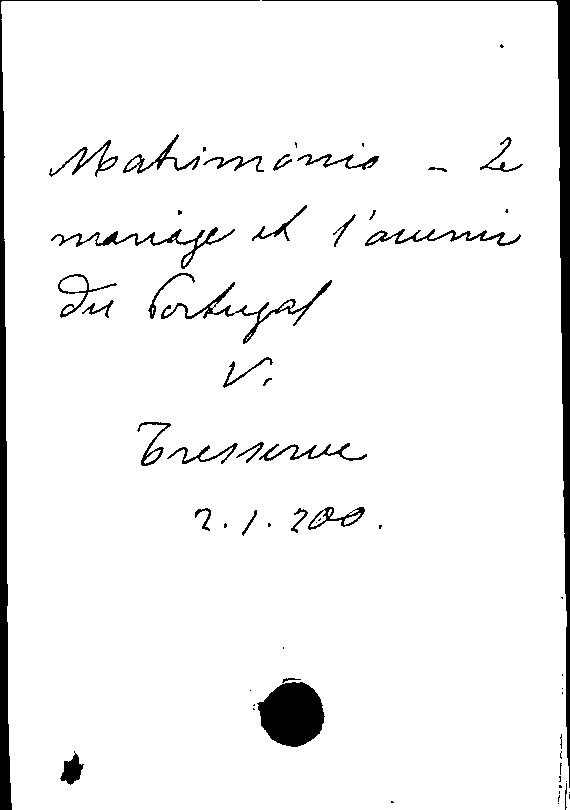 Matrimónio - Le
mariage et l'avenir
du Portugal
V.
Tresserve
2.1.200.